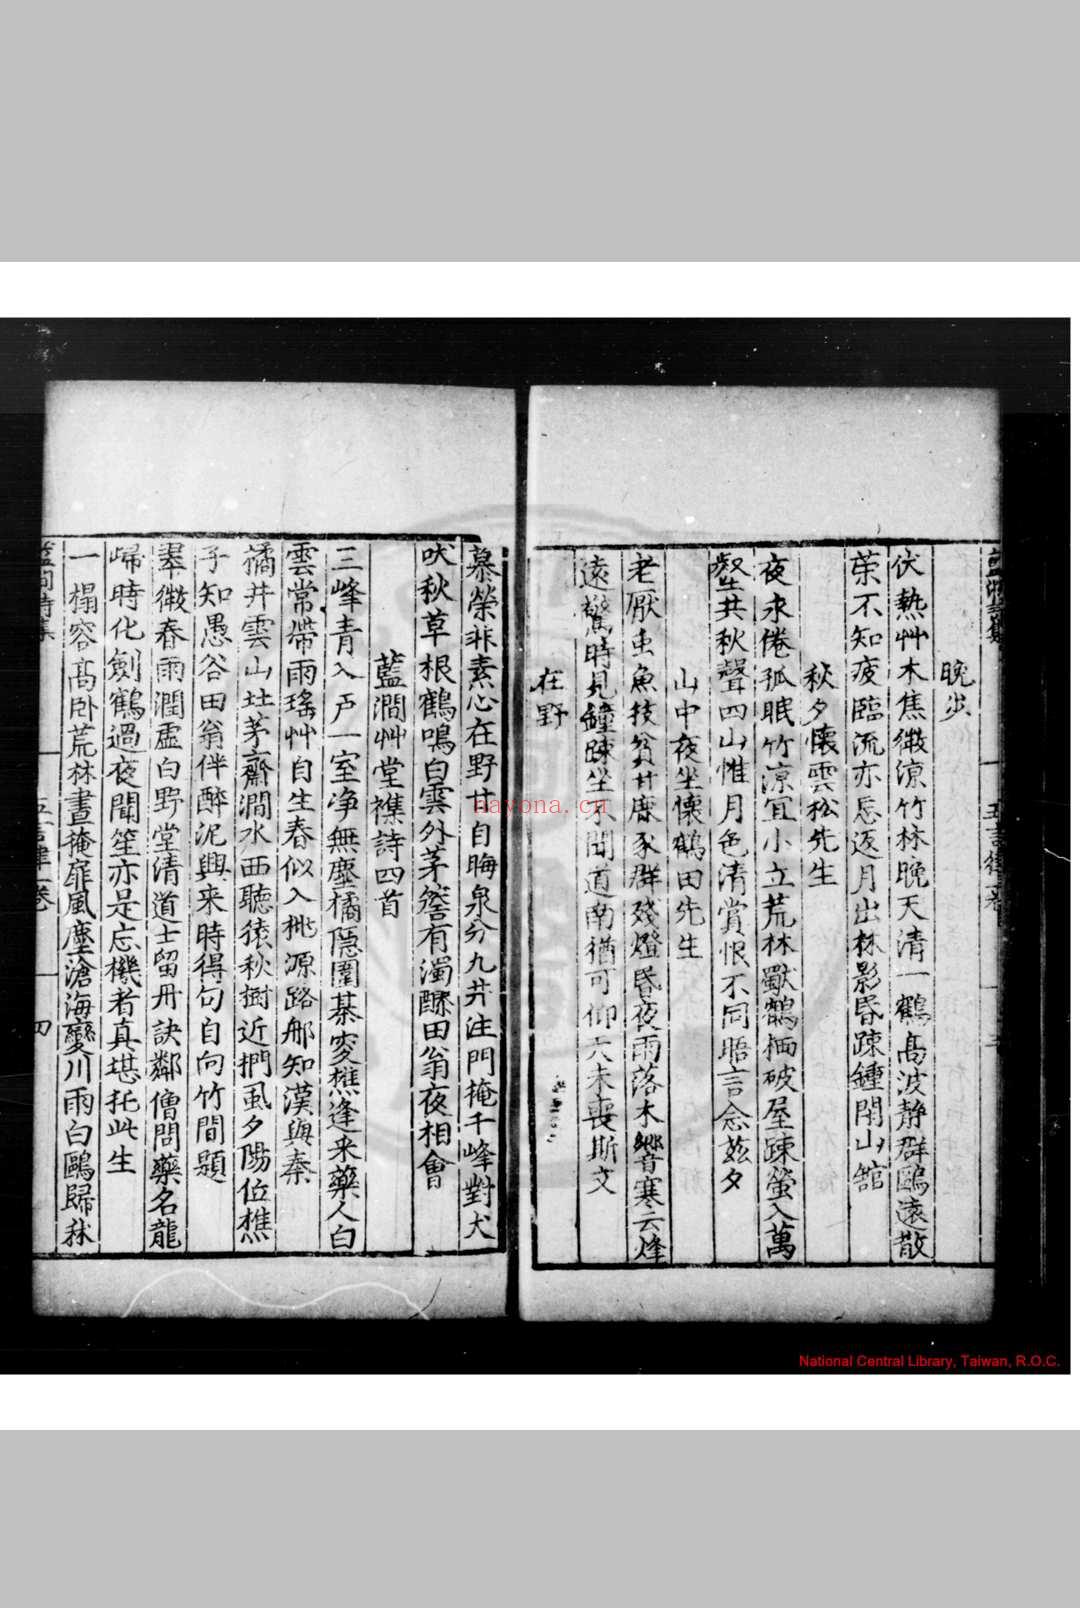 晚步
伏熱艸木焦微凉竹林晚天清一鶴髙波静群鷗遠散
荣不知疲臨流亦忘返月出林影昏踈鍾閉山舘
秋夕懷雲松先生
夜永倦孤眠竹凉宜小立荒林獸鶴栖破屋踈螢入萬
壑共秋聲四山惟月色清賞恨不同晤言念兹夕
山中夜坐懷鶴田先生
老厭虫魚技貧甘鹿豕群殘燈昏夜雨落木響寒云烽
遠驚時見鐘踈坐不聞道南猶可仰天未喪斯文
在野
慕榮非素心在野甘自晦泉分九井注門掩千峰對犬
吠秋草根鶴鳴白雲外茅簷有濁醪田翁夜相會
藍澗艸堂襍詩四首
三峰青入户一室净無塵橘隱圍棊叟樵逢来藥人白
雲常帶雨瑤艸自生春似入桃源路那知漢與秦
橘井雲山圡茅齋澗水西聽猿秋樹近捫虱夕陽低樵
子知愚谷田翁伴醉泥興来時得句自向竹間題
翠微春雨潤虚白野堂清道士留丹訣鄰僧問藥名龍
歸時化劍鶴過夜聞笙亦是忘機者真堪托此生
一榻容髙卧荒林晝掩扉風塵滄海變川雨白鷗歸秫
藍澗詩集
五言律一卷
四
National Central Library, Taiwan, R.O.C.
nayona.cn